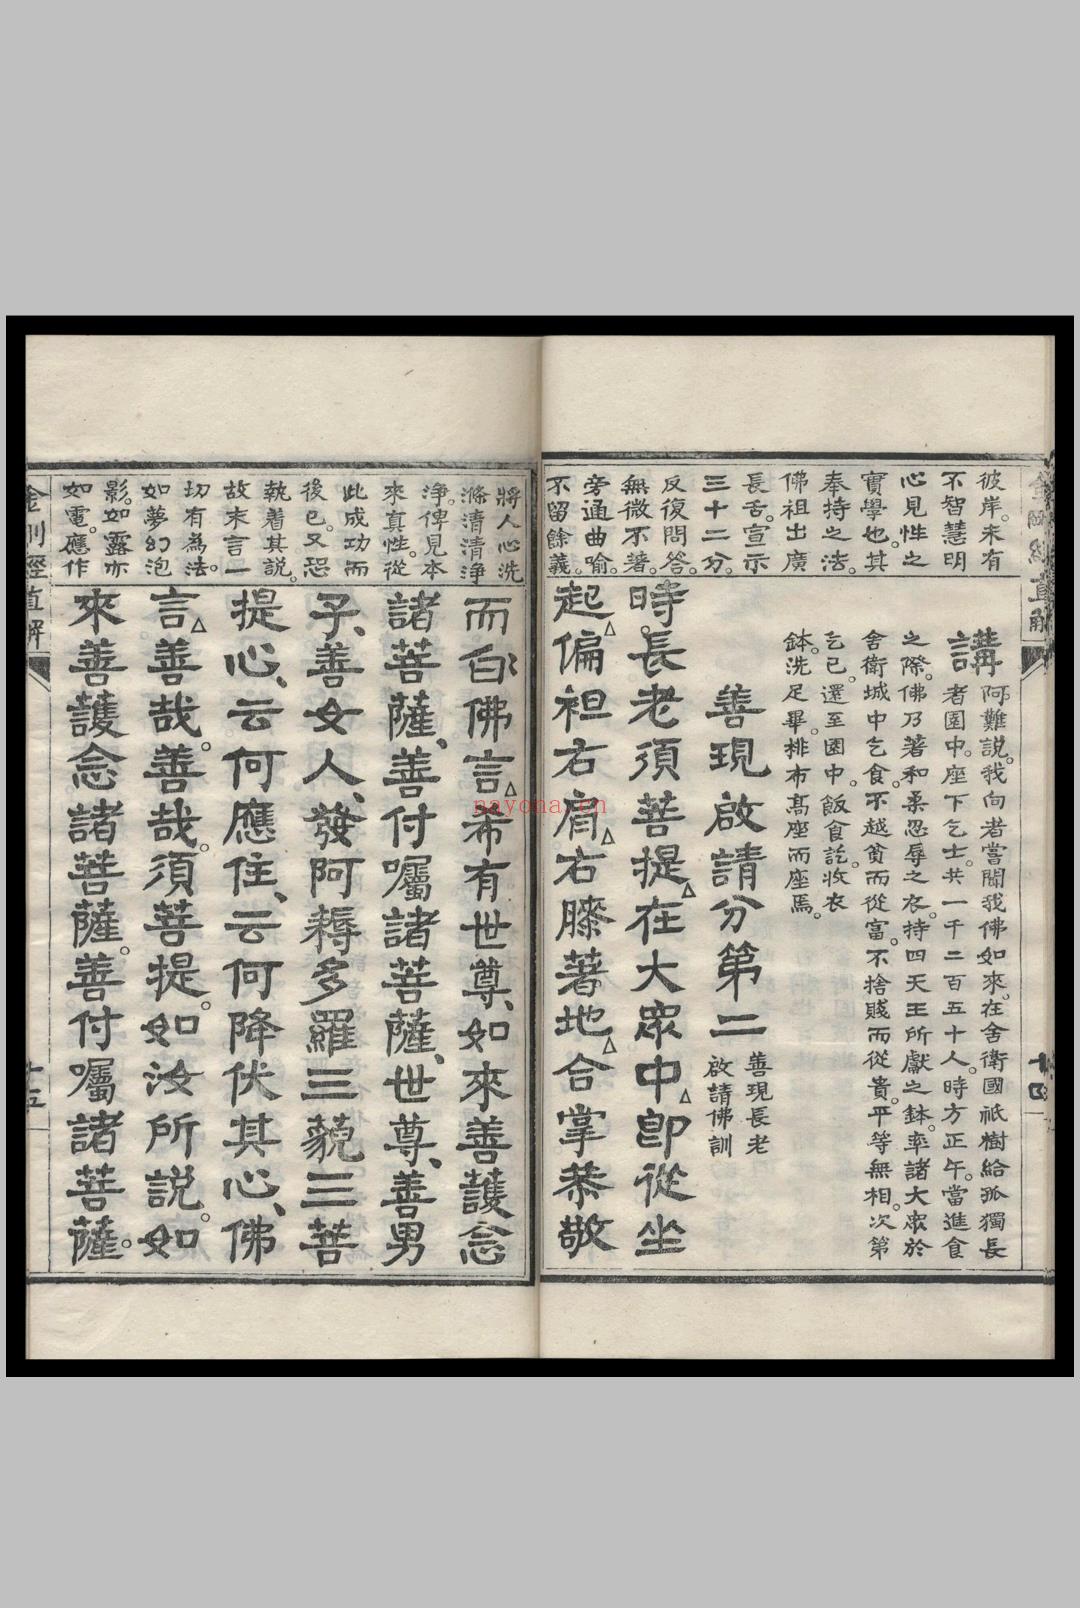 彼岸。未有
不智慧明
心見性之
實學也。其
奉持之法。
佛祖出廣
長舌。宣示
三十二分。
反復問答。
無微不著。
旁通曲喻。
不留餘義。
講
阿難說。我向者當聞我佛如來。在舍衛國祇樹給孤獨長
者園中。座下乞士。共一千二百五十人。時方正午。當進食
之際。佛乃著和柔忍辱之衣。持四天王所獻之鉢。率諸大眾於
舍衛城中乞食。不越貧而從富。不捨賤而從貴。平等無相。次第
乞已。還至園中。飯食訖。收衣
鉢。洗足畢。排布高座而座焉。
善現啟請分第二
善現長老
啟請佛訓
時。長老須菩提△在大眾中△即從坐
起△偏袒右肩△右膝著地△合掌恭敬
十四
金剛經直解
將人心洗
滌清清淨
淨。俾見本
來真性。從
此成功而
後已。又恐
執着其說。
故末言一
切有為法。
如夢幻泡
影。如露亦
如電。應作
而白佛言△希有世尊、如來善護念
諸菩薩、善付囑諸菩薩、世尊、善男
子、善女人、發阿耨多羅三藐三菩
提心、云何應住、云何降伏其心、佛
言△善哉。善哉。須菩提。如汝所說。如
來善護念諸菩薩。善付囑諸菩薩。
金剛經直解
十五
nayona.cn